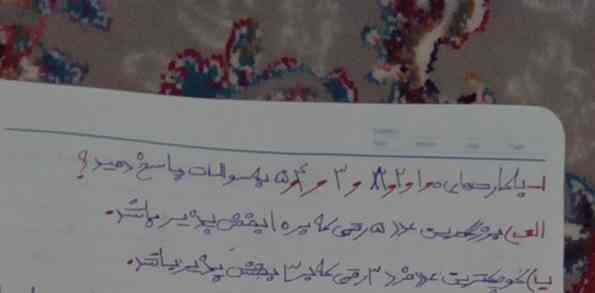 ۱- با کارت‌های ۰ و ۱ و ۲ و ۳ و ۴ و ۵ به سوالات پاسخ دهید؟
الف) بزرگترین عدد ۵ رقمی که بر ۱۰ بخش پذیر باشد.
ب) کوچکترین عدد فرد ۳ رقمی که بر ۳ بخش پذیر باشد.